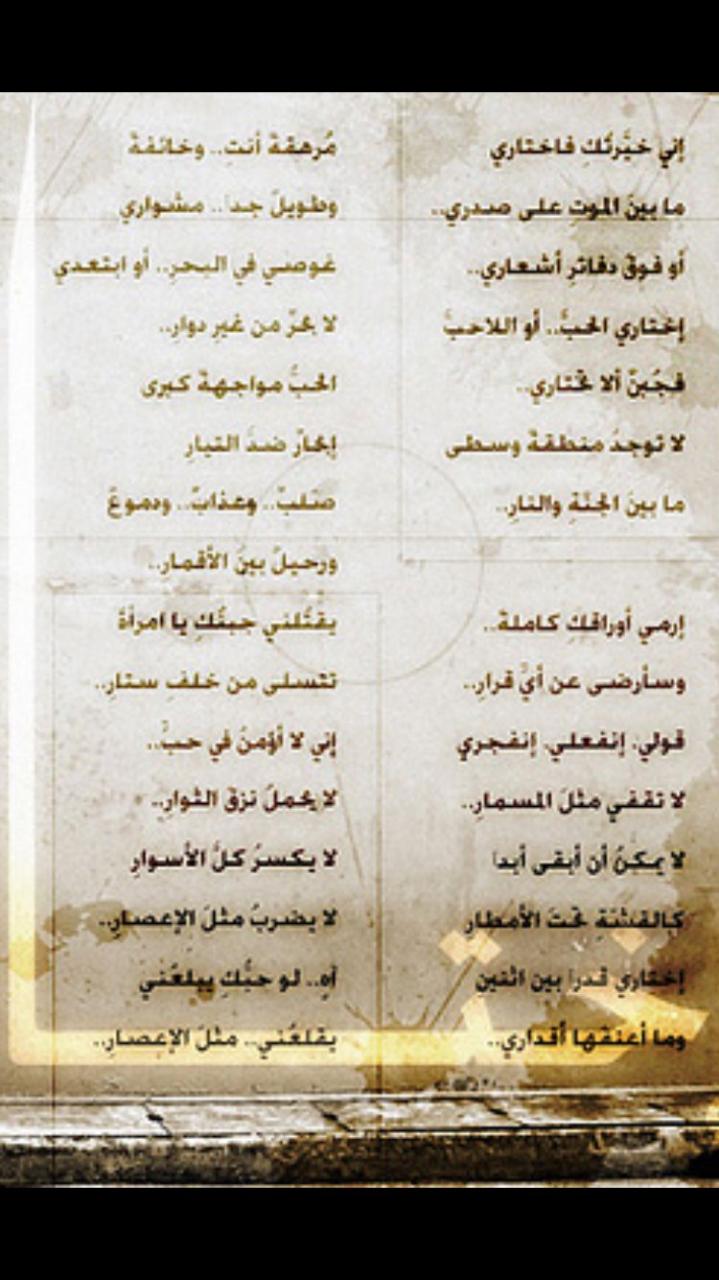 إني خيَّرتُكِ فاختاري
ما بينَ الموتِ على صدري..
أو فوقَ دفاترِ أشعاري..
إختاري الحبَّ.. أو اللاحبَّ
فجُبنٌ ألا تختاري..
لا توجدُ منطقةٌ وسطى
ما بينَ الجنّةِ والنارِ..
إرمي أوراقكِ كاملةً..
وسأرضى عن أيِّ قرارِ..
قولي. إنفعلي. إنفجري
لا تقفي مثلَ المسمارِ..
لا يمكنُ أن أبقى أبداً
كالقشّةِ تحتَ الأمطارِ
إختاري قدراً بين اثنينِ
وما أعنفَها أقداري..
مُرهقةٌ أنتِ.. وخائفةٌ
وطويلٌ جداً.. مشواري
غوصي في البحرِ.. أو ابتعدي
لا بحرٌ من غيرِ دوارِ..
الحبُّ مواجهةٌ كبرى
إبحارٌ ضدَّ التيارِ
صَلبٌ.. وعذابٌ.. ودموعٌ
ورحيلٌ بينَ الأقمارِ..
يقتُلني جبنُكِ يا امرأةً
تتسلى من خلفِ ستارِ..
إني لا أؤمنُ في حبٍّ..
لا يحملُ نزقَ الثوارِ..
لا يكسرُ كلَّ الأسوارِ
لا يضربُ مثلَ الإعصارِ..
آهٍ.. لو حبُّكِ يبلعُني
يقلعُني.. مثلَ الإعصارِ..